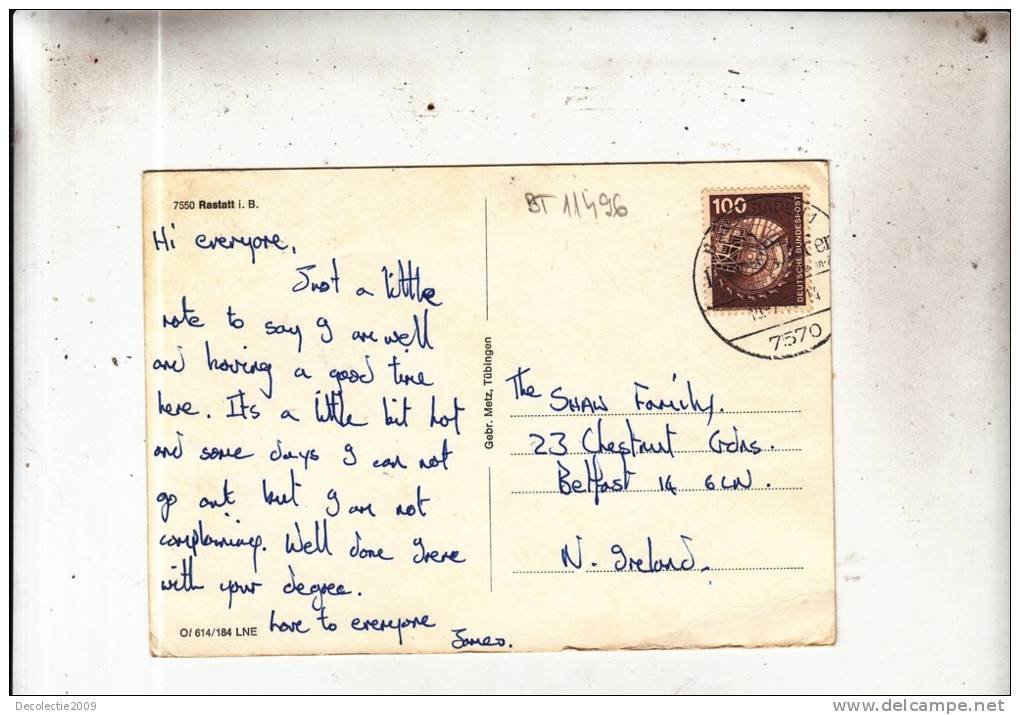 BT 11496
7550 Rastatt i. B.
100
DEUTSCHE BUNDESPOST
7570
Hi everyone,
Just a little
note to say I am well
and having a good time
here. It's a little bit hot
and some days I can not
go out but I am not
complaining. Well done Irene
with your degree.
Love to everyone
James.
Of 614/184 LNE
Gebr. Metz, Tübingen
The SHAW Family.
23 Chestnut Gdns.
Belfast 14 6LN.
N. Ireland.
Decolectie2009
www.delcampe.net